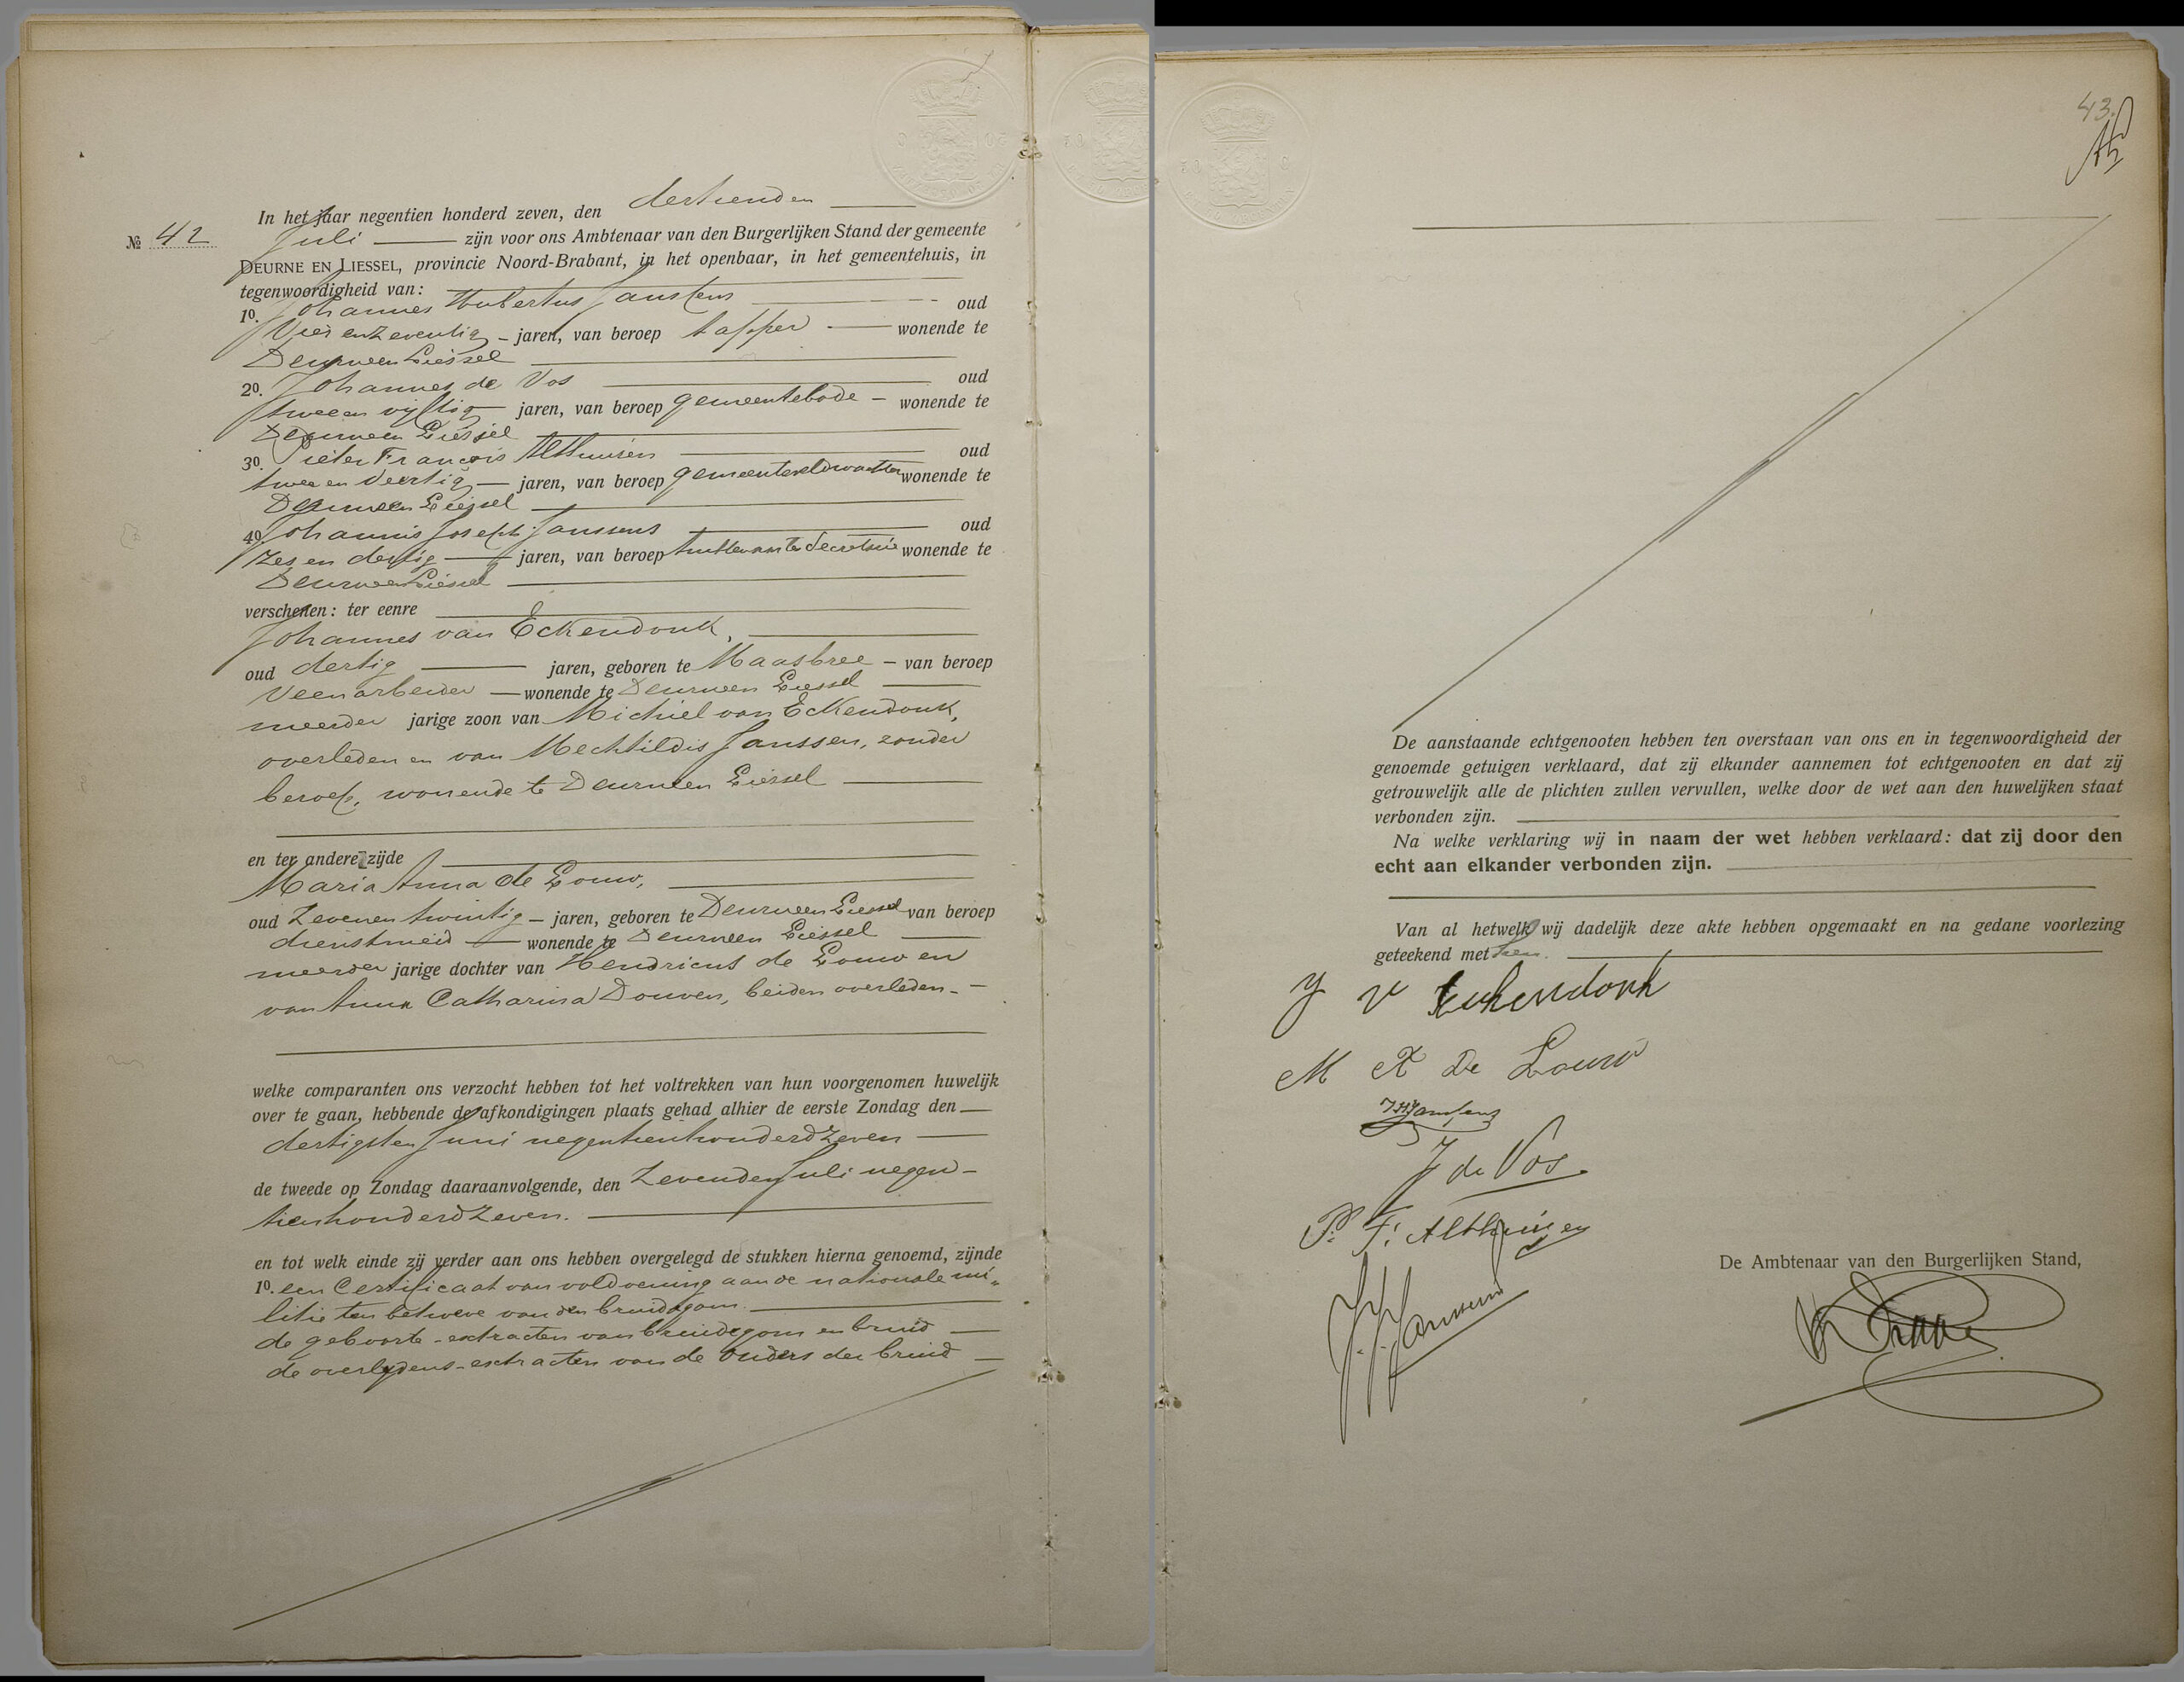 In het jaar negentien honderd zeven, den dertienden
№ 42
Juli zijn voor ons Ambtenaar van den Burgerlijken Stand der gemeente
DEURNE EN LIESSEL, provincie Noord-Brabant, in het openbaar, in het gemeentehuis, in
tegenwoordigheid van:
1º. Johannes Hubertus Janssens oud
Vier en zeventig jaren, van beroep tapper wonende te
Deurne en Liessel
2º. Johannes de Vos oud
twee en vijftig jaren, van beroep gemeentebode wonende te
Deurne en Liessel
3º. Pieter François Althuizen oud
twee en veertig jaren, van beroep gemeenteveldwachter wonende te
Deurne en Liessel
4º. Johannis Joseph Janssens oud
zes en dertig jaren, van beroep Ambtenaar ter Secretarie wonende te
Deurne en Liessel
verschenen: ter eenre
Johannes van Eckendonk,
oud dertig jaren, geboren te Maasbree – van beroep
Veenarbeider wonende te Deurne en Liessel
meerder jarige zoon van Michiel van Eckendonk,
overleden en van Mechtildis Janssen, zonder
beroep, wonende te Deurne en Liessel
en ter andere zijde
Maria Anna de Louw,
oud zeven en twintig – jaren, geboren te Deurne en Liessel van beroep
dienstmeid wonende te Deurne en Liessel
meerder jarige dochter van Hendricus de Louw en
van Anna Catharina Douven, beiden overleden.
welke comparanten ons verzocht hebben tot het voltrekken van hun voorgenomen huwelijk
over te gaan, hebbende de afkondigingen plaats gehad alhier de eerste Zondag den
dertigsten Juni negentienhonderd zeven
de tweede op Zondag daaraanvolgende, den zevenden Juli negen-
tienhonderd zeven.
en tot welk einde zij verder aan ons hebben overgelegd de stukken hierna genoemd, zijnde
1º. een Certificaat van voldoening aan de nationale mi„
litie ten behoeve van den bruidegom.
de geboorte-extracten van bruidegom en bruid
de overlijdens-extracten van de ouders der bruid
43.
De aanstaande echtgenooten hebben ten overstaan van ons en in tegenwoordigheid der
genoemde getuigen verklaard, dat zij elkander aannemen tot echtgenooten en dat zij
getrouwelijk alle de plichten zullen vervullen, welke door de wet aan den huwelijken staat
verbonden zijn.
Na welke verklaring wij in naam der wet hebben verklaard: dat zij door den
echt aan elkander verbonden zijn.
Van al hetwelk wij dadelijk deze akte hebben opgemaakt en na gedane voorlezing
geteekend met hen.
J v Eckendonk
M A De Louw
J H Janssens
J de Vos.
P. F. Althuizen
J. J. Janssens
De Ambtenaar van den Burgerlijken Stand,